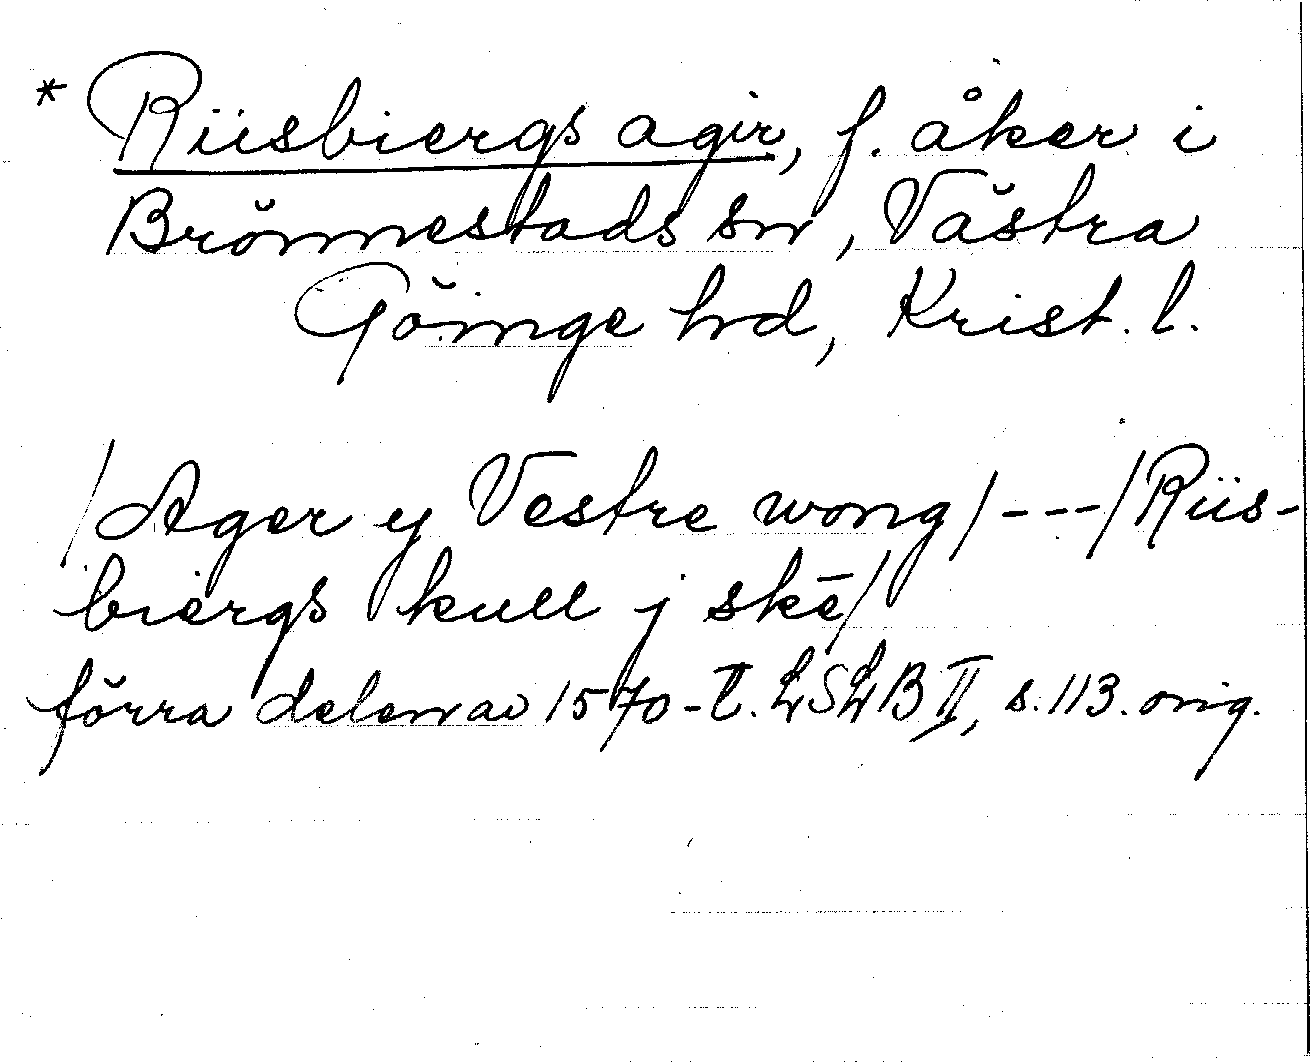 * Riisbiergs agir, f. åker i
Brönnestads sn, Västra
Göinge hd, Krist. l.
/Ager y Vestre wong/---/Riis-
biergs kull j skē/
förra delen av 1570-t. LSLB II, s. 113. orig.